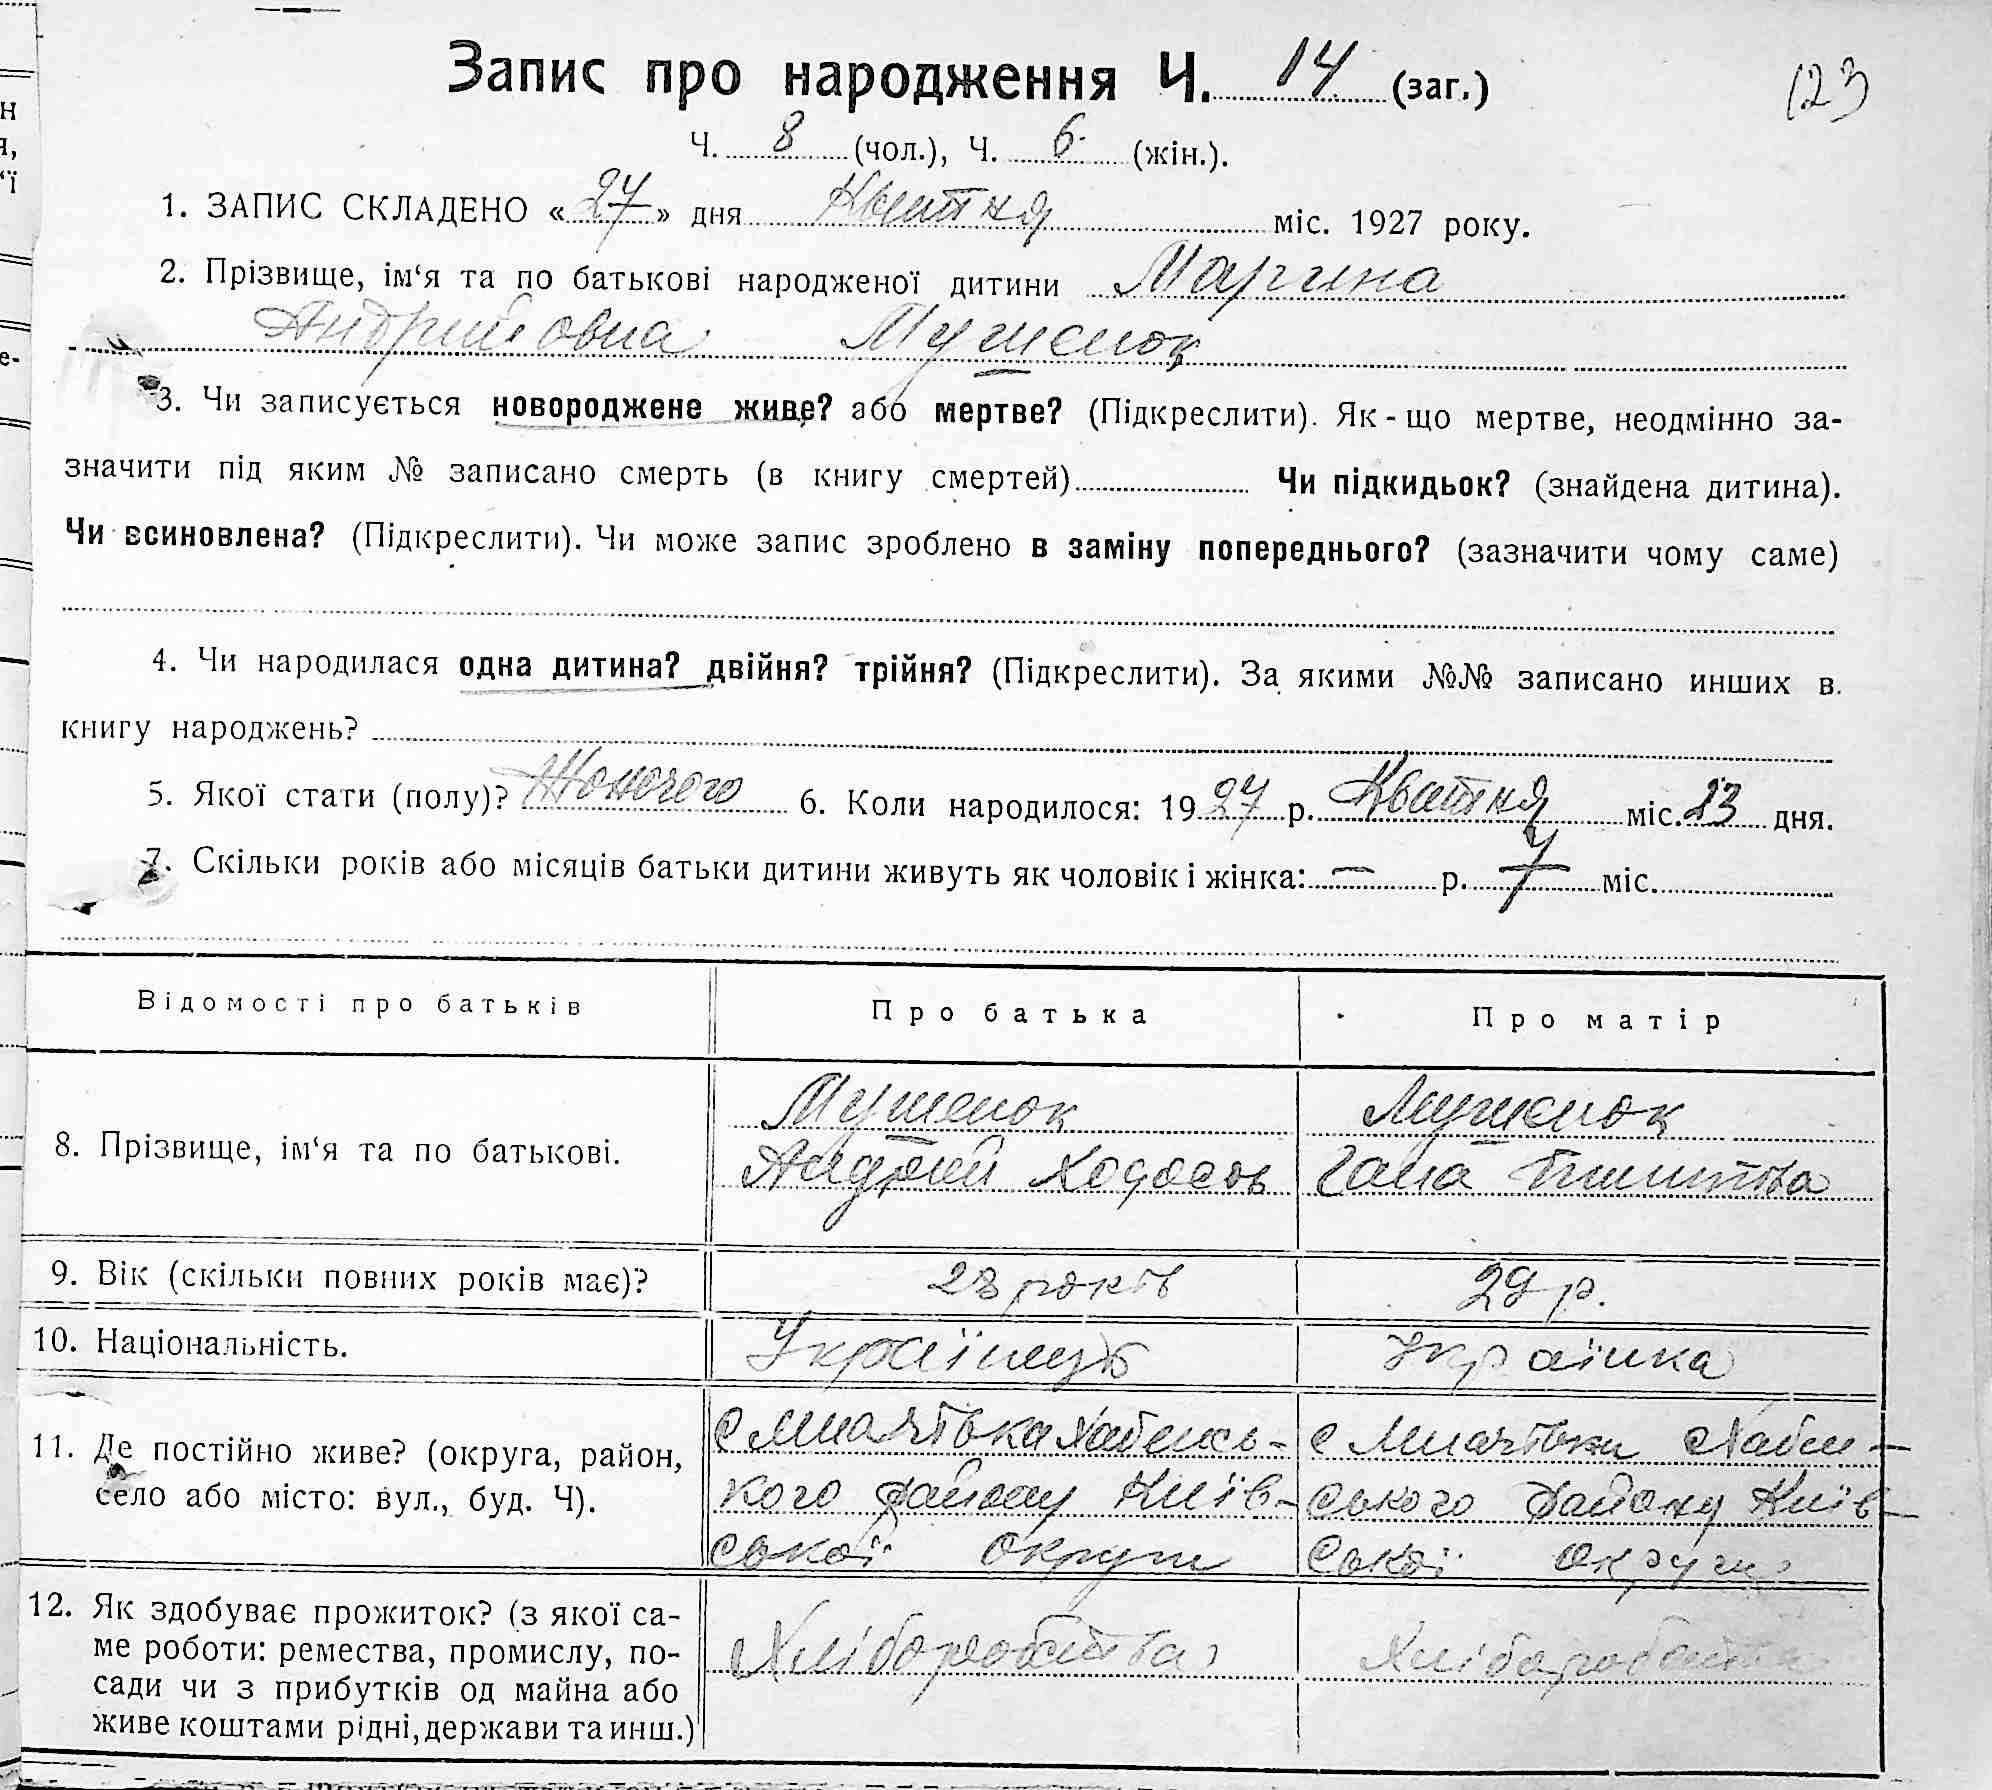 Запис про народження Ч. 14 (заг.)
123
Ч. 8 (чол.), Ч. 6 (жін.).
1. ЗАПИС СКЛАДЕНО «27» дня Квітня міс. 1927 року.
2. Прізвище, ім‘я та по батькові народженої дитини Марина
Андрийовна Мушенок
3. Чи записується новороджене живе? або мертве? (Підкреслити). Як-що мертве, неодмінно за-
значити під яким № записано смерть (в книгу смертей) Чи підкидьок? (знайдена дитина).
Чи всиновлена? (Підкреслити). Чи може запис зроблено в заміну попереднього? (зазначити чому саме)
4. Чи народилася одна дитина? двійня? трійня? (Підкреслити). За якими №№ записано инших в
книгу народжень?
5. Якої стати (полу)? Жоночого 6. Коли народилося: 1927 р. Квітня міс. 23 дня.
7. Скільки років або місяців батьки дитини живуть як чоловік і жінка: — р. 7 міс.
Відомості про батьків Про батька Про матір
8. Прізвище, ім‘я та по батькові. Мушенок Мушенок
Андрей Ходосов Гана
9. Вік (скільки повних років має)? 28 років 29 р.
10. Національність. Українець Українка
11. Де постійно живе? (округа, район,
село або місто: вул., буд. Ч).
с Хабенсь-
кого району Київ-
ської округи
с Хабен-
ського району Київ-
ської округи
12. Як здобуває прожиток? (з якої са-
ме роботи: ремества, промислу, по-
сади чи з прибутків од майна або
живе коштами рідні, держави та инш.)
Хліборобства Хліборобства